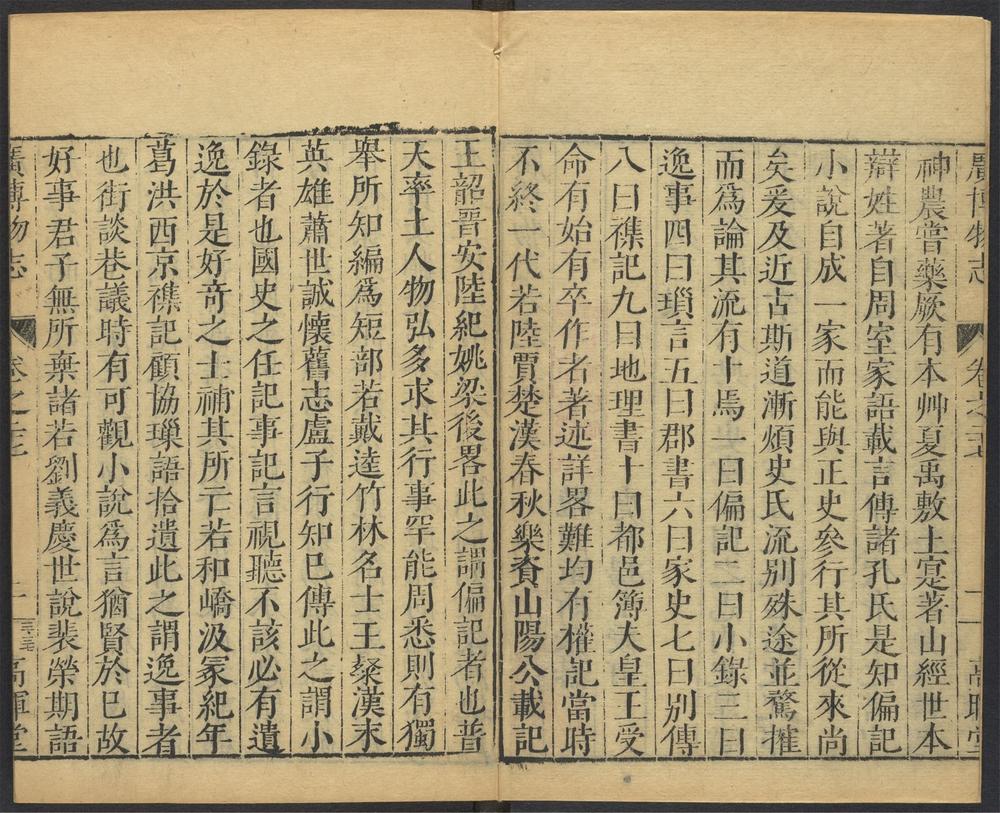 廣博物志 卷之二十七 一 高暉堂
神農嘗藥厥有本艸夏禹敷土寔著山經世本
辯姓著自周室家語載言傳諸孔氏是知偏記
小說自成一家而能與正史參行其所從來尚
矣爰及近古斯道漸煩史氏流別殊途並騖摧
而爲論其流有十焉一曰偏記二曰小錄三曰
逸事四曰瑣言五曰郡書六曰家史七曰別傳
八曰襍記九曰地理書十曰都邑簿夫皇王受
命有始有卒作者著述詳畧難均有權記當時
不終一代若陸賈楚漢春秋樂資山陽公載記
王韶晋安陸紀姚梁後畧此之謂偏記者也普
天率土人物弘多求其行事罕能周悉則有獨
舉所知編爲短部若戴逵竹林名士王粲漢末
英雄蕭世誠懷舊志盧子行知巳傳此之謂小
錄者也國史之任記事記言視聽不該必有遺
逸於是好竒之士補其所亡若和嶠汲冢紀年
葛洪西京襍記顧協瑣語拾遺此之謂逸事者
也街談巷議時有可觀小說爲言猶賢於巳故
好事君子無所棄諸若劉義慶世說裴榮期語
廣博物志 卷之二十七 二 高暉堂